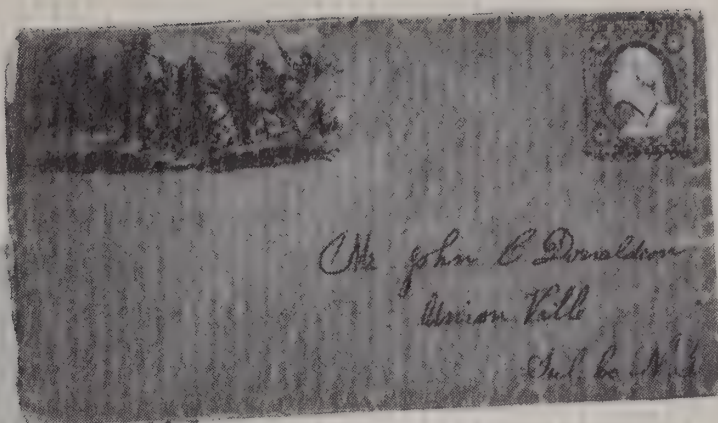 Mr John C Donaldson
Union Ville
Sul. Co N.Y.